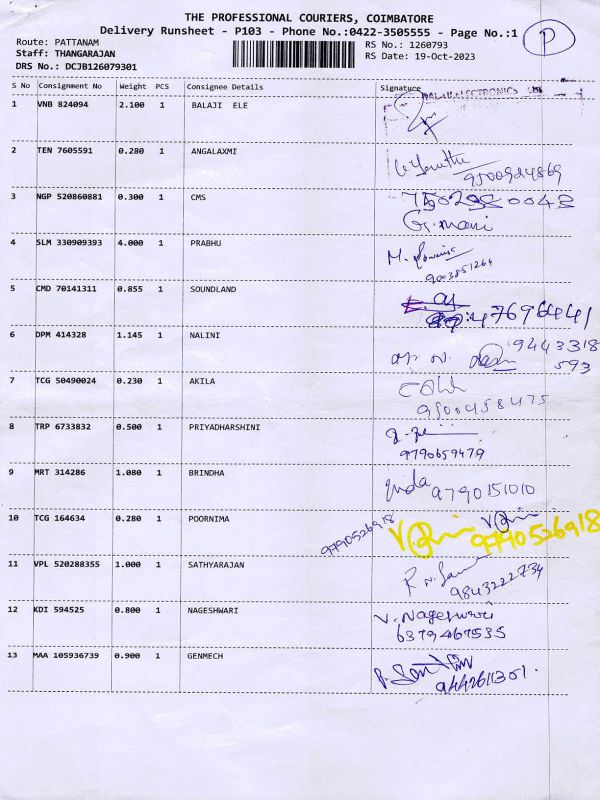 THE PROFESSIONAL COURIERS, COIMBATORE
Delivery Runsheet - P103 - Phone No.:0422-3505555 - Page No.:1
P
Route: PATTANAM
RS No.: 1260793
Staff: THANGARAJAN
RS Date: 19-Oct-2023
DRS No.: DCJB126079301
S No Consignment No Weight PCS Consignee Details Signature
1 VNB 824094 2.100 1 BALAJI ELE
2 TEN 7605591 0.280 1 ANGALAXMI
9500924869
3 NGP 520860881 0.300 1 CMS
G. mani
4 SLM 330909393 4.000 1 PRABHU
9003851264
5 CMD 70141311 0.855 1 SOUNDLAND
6 DPM 414328 1.145 1 NALINI 9443318
593
7 TCG 50490024 0.230 1 AKILA
9500458475
8 TRP 6733832 0.500 1 PRIYADHARSHINI
9790659479
9 MRT 314286 1.080 1 BRINDHA
9790151010
10 TCG 164634 0.280 1 POORNIMA 9790526918
9790526918
11 VPL 520288355 1.000 1 SATHYARAJAN
9843222734
12 KDI 594525 0.800 1 NAGESHWARI V. Nageshwari
6379467535
13 MAA 105936739 0.900 1 GENMECH
9442611301.